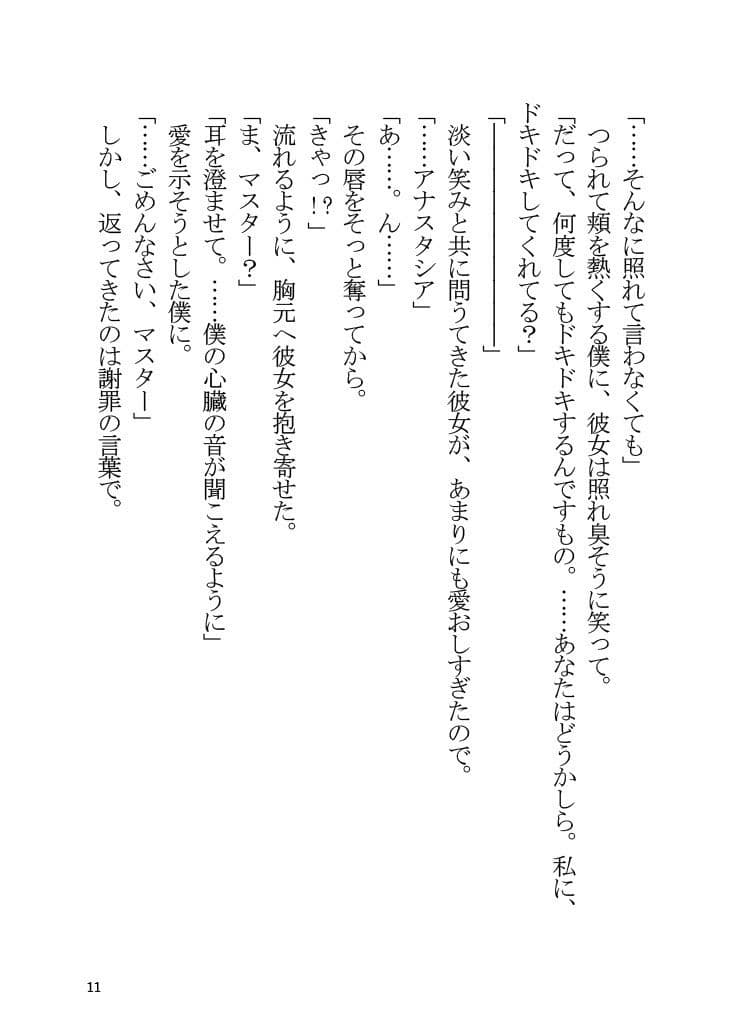 「……そんなに照れて言わなくても」
つられて頬を熱くする僕に、彼女は照れ臭そうに笑って。
「だって、何度してもドキドキするんですもの。……あなたはどうかしら。私に、
ドキドキしてくれてる？」
「―――――――――――」
淡い笑みと共に問うてきた彼女が、あまりにも愛おしすぎたので。
「……アナスタシア」
「あ……。ん……」
その唇をそっと奪ってから。
「きゃっ!?」
流れるように、胸元へ彼女を抱き寄せた。
「ま、マスター？」
「耳を澄ませて。……僕の心臓の音が聞こえるように」
愛を示そうとした僕に。
「……ごめんなさい、マスター」
しかし、返ってきたのは謝罪の言葉で。
11